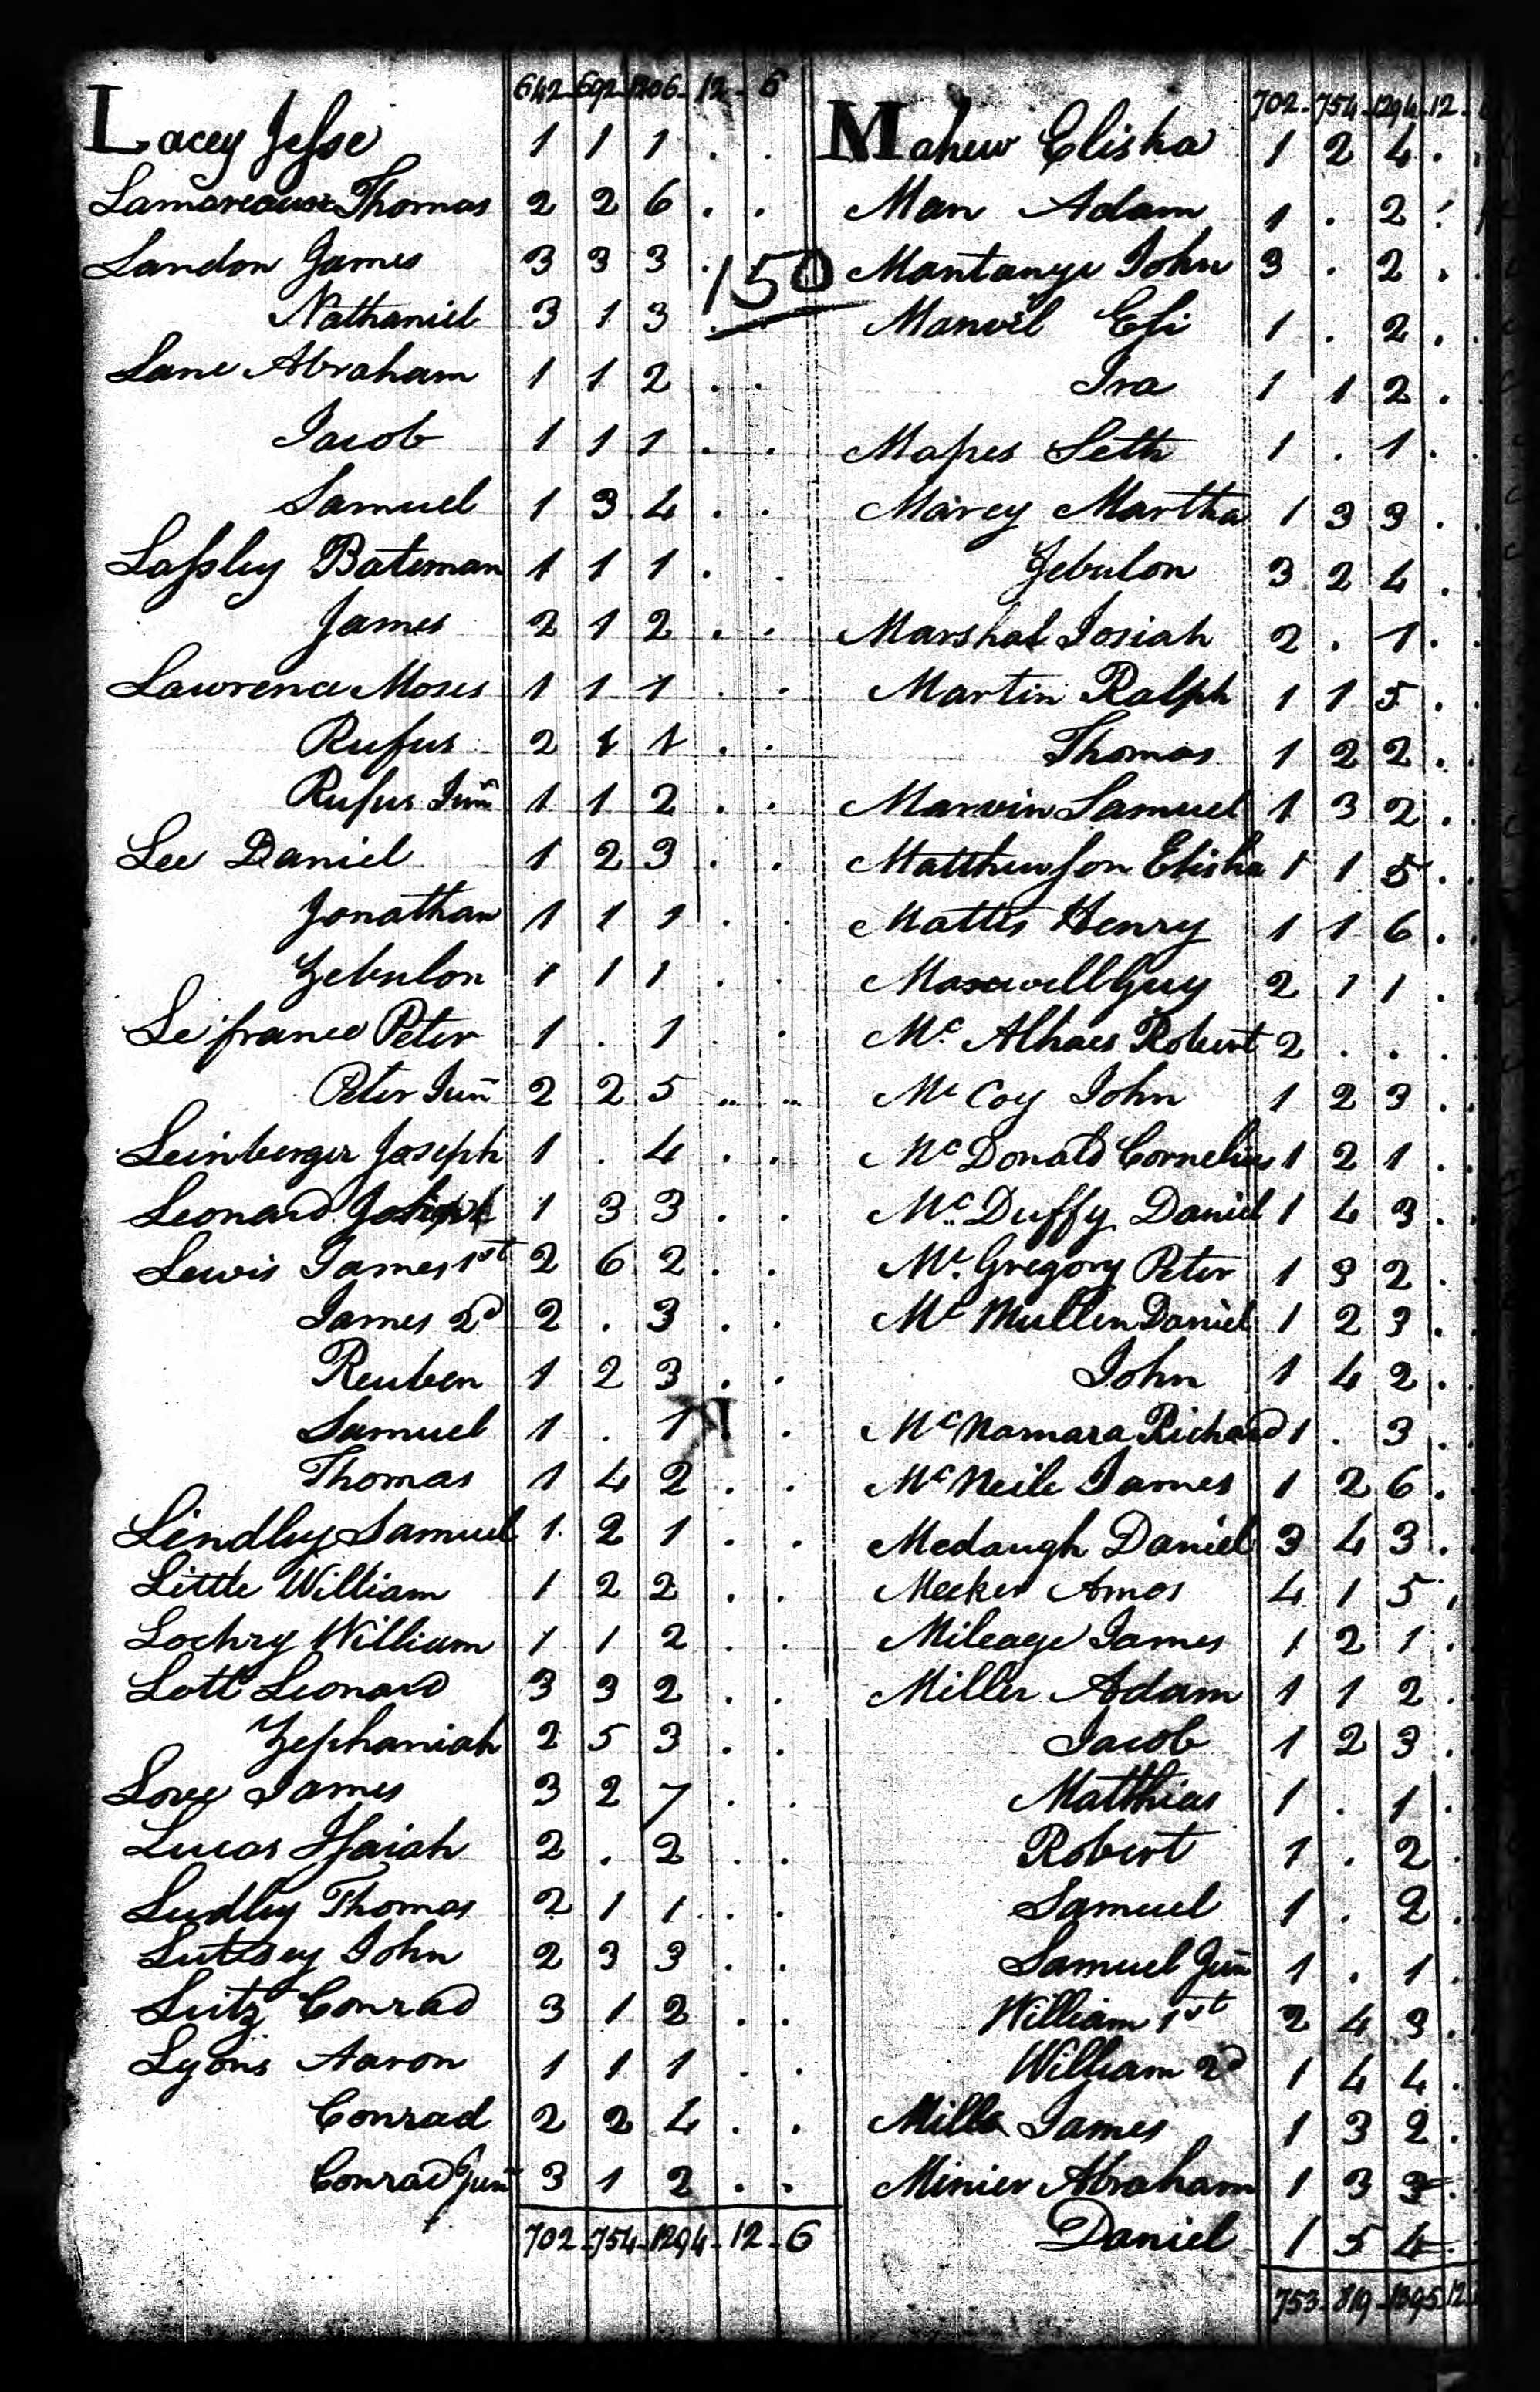 642 - 692 - 1206 - 12 - 6
Lacey Jesse 1 1 1 . .
Lamoreaux Thomas 2 2 6 . .
Landon James 3 3 3 .
150
Nathaniel 3 1 3 . .
Lane Abraham 1 1 2 . .
Jacob 1 1 1 . .
Samuel 1 3 4 . .
Lassley Bateman 1 1 1 . .
James 2 1 2 . .
Lawrence Moses 1 1 1 . .
Rufus 2 1 1 . .
Rufus Junr 1 1 2 . .
Lee Daniel 1 2 3 . .
Jonathan 1 1 1 . .
Zebulon 1 1 1 . .
Le france Peter 1 . 1 . .
Peter Junr 2 2 5 .. ..
Leinberger Joseph 1 . 4 . .
Leonard 1 3 3 . .
Lewis James 1st 2 6 2 . .
James 2d 2 . 3 . .
Reuben 1 2 3 . .
Samuel 1 . 1 .
Thomas 1 4 2 . .
Lindley Samuel 1 2 1 . .
Little William 1 2 2 . .
Lochry William 1 1 2 . .
Lott Leonard 3 3 2 . .
Zephaniah 2 5 3 . .
Love James 3 2 7 . .
Lucas Isaiah 2 . 2 . .
Ludley Thomas 2 1 1 . .
Lutsey John 2 3 3 . .
Lutz Conrad 3 1 2 . .
Lyons Aaron 1 1 1 . .
Conrad 2 2 4 . .
Conrad Junr 3 1 2 . .
702 - 754 - 1294 - 12 - 6
702 - 754 - 1294 - 12 -
Mahew Elisha 1 2 4 .
Man Adam 1 . 2 .
Mantanye John 3 . 2 .
Manvil Eli 1 . 2 .
Ira 1 1 2 .
Mapes Seth 1 . 1 .
Marcy Martha 1 3 3 .
Zebulon 3 2 4 .
Marshal Josiah 2 . 1 .
Martin Ralph 1 1 5 .
Thomas 1 2 2 .
Marvin Samuel 1 3 2 .
Matthewson Elisha 1 1 5 .
Mattis Henry 1 1 6 .
Maxwell Guy 2 1 1 .
Mc Alhaes Robert 2 . . .
Mc Coy John 1 2 3 .
Mc Donald Cornelius 1 2 1 .
Mc Duffy Daniel 1 4 3 .
Mc Gregory Peter 1 3 2 .
Mc Mullen Daniel 1 2 3 .
John 1 4 2 .
Mc Namara Richard 1 . 3 .
Mc Neile James 1 2 6 .
Medaugh Daniel 3 4 3 .
Meeker Amos 4 1 5 .
Mileage James 1 2 1 .
Miller Adam 1 1 2 .
Jacob 1 2 3 .
Matthias 1 . 1 .
Robert 1 . 2 .
Samuel 1 . 2 .
Samuel Junr 1 . 1 .
William 1st 2 4 3 .
William 2d 1 4 4 .
Mills James 1 3 2 .
Minier Abraham 1 3 3 .
Daniel 1 5 4 .
753 - 819 - 1395 - 12 -